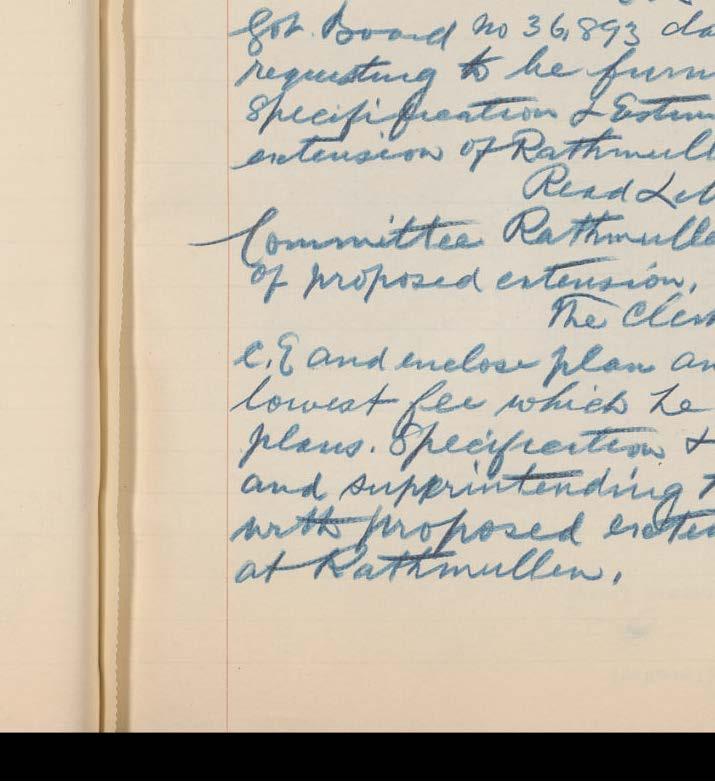 Gov. Board No 36,893 da
requesting to be furn
Specification & Estim
extension of Rathmull
Read Let
Committee Rathmulle
of proposed extension.
The Cler
C.E and enclose plan an
lowest fee which he
plans. Specification &
and supperintending
with proposed exten
at Rathmullen.